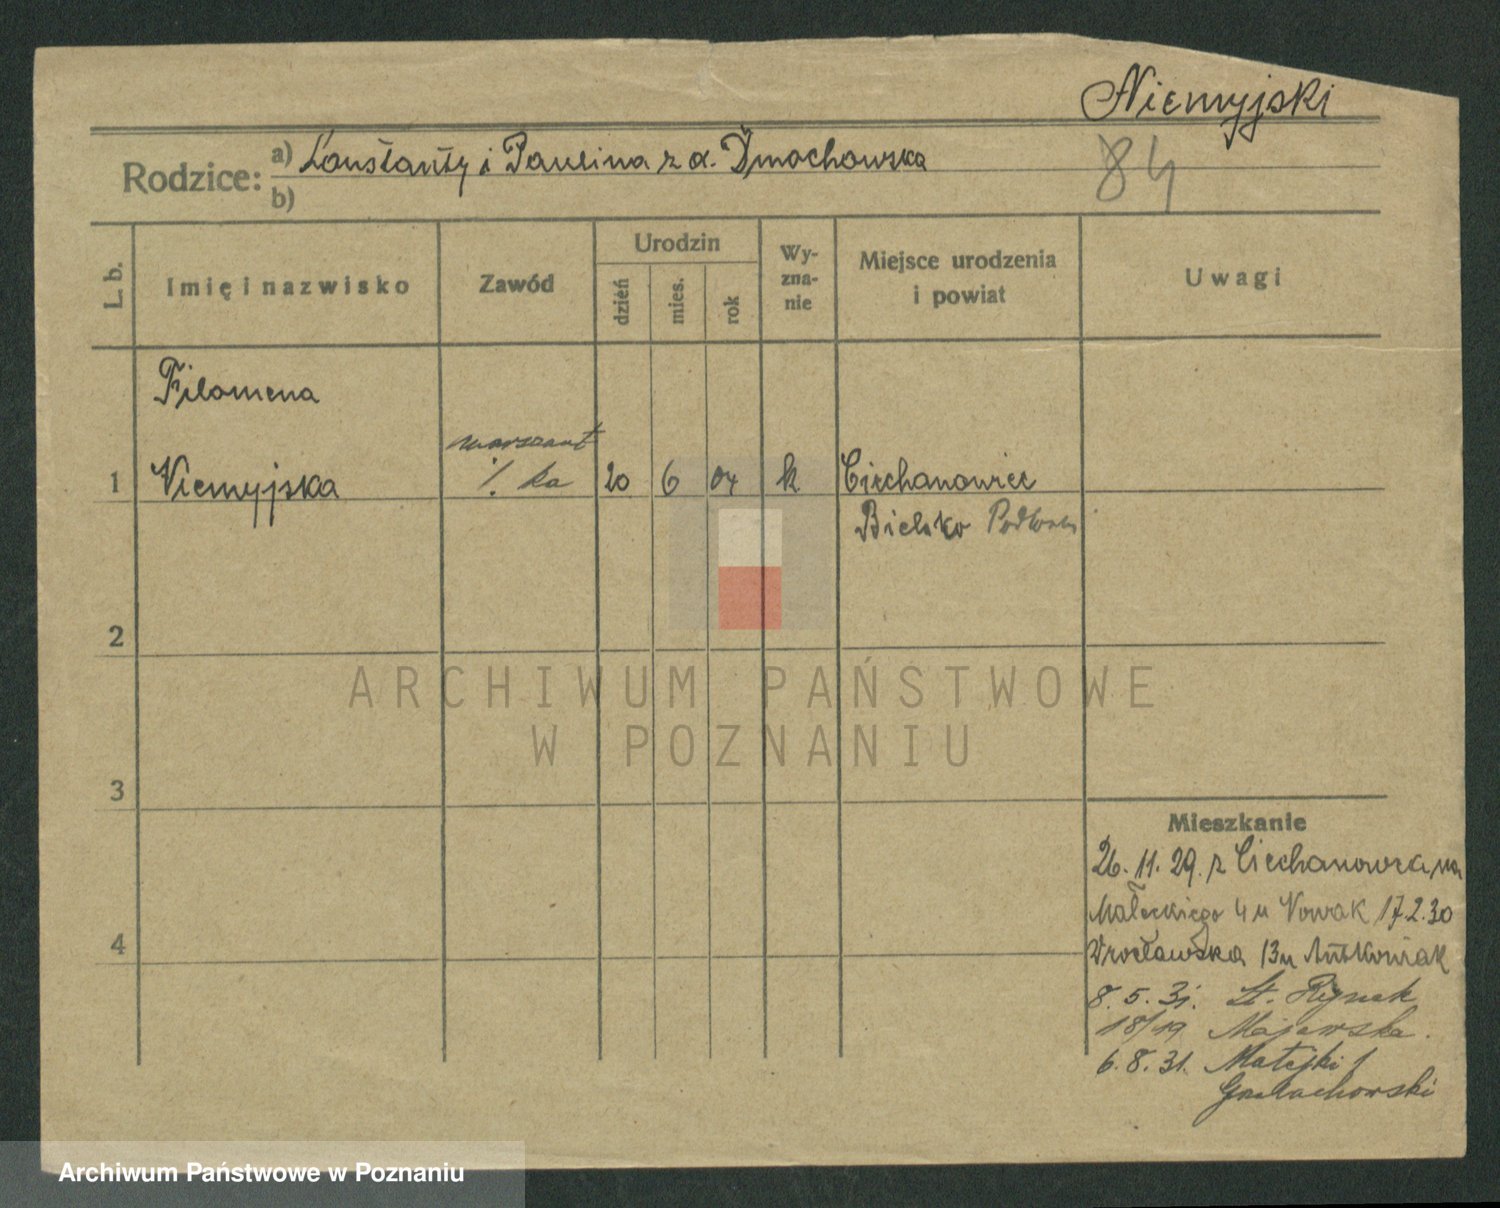 Niemyjski
Rodzice: a) Konstanty i Paulina z d. Dmochowska
b)
84
L. b.
Imię i nazwisko
Zawód
Urodzin
dzień
mies.
rok
Wy-
zna-
nie
Miejsce urodzenia
i powiat
Uwagi
Filomena
1 Niemyjska
ka
20 6 04 k Ciechanowiec
Bielsko
2
3
4
ARCHIWUM PAŃSTWOWE
W POZNANIU
Mieszkanie
26. 11. 29. z Ciechanowca na
Małeckiego 4 u Nowak 17.2.30
Wrocławska 13 u Antkowiak
8. 5. 31. St. Rynek
18/19 Majewska.
6. 8. 31. Matejki 1
Archiwum Państwowe w Poznaniu